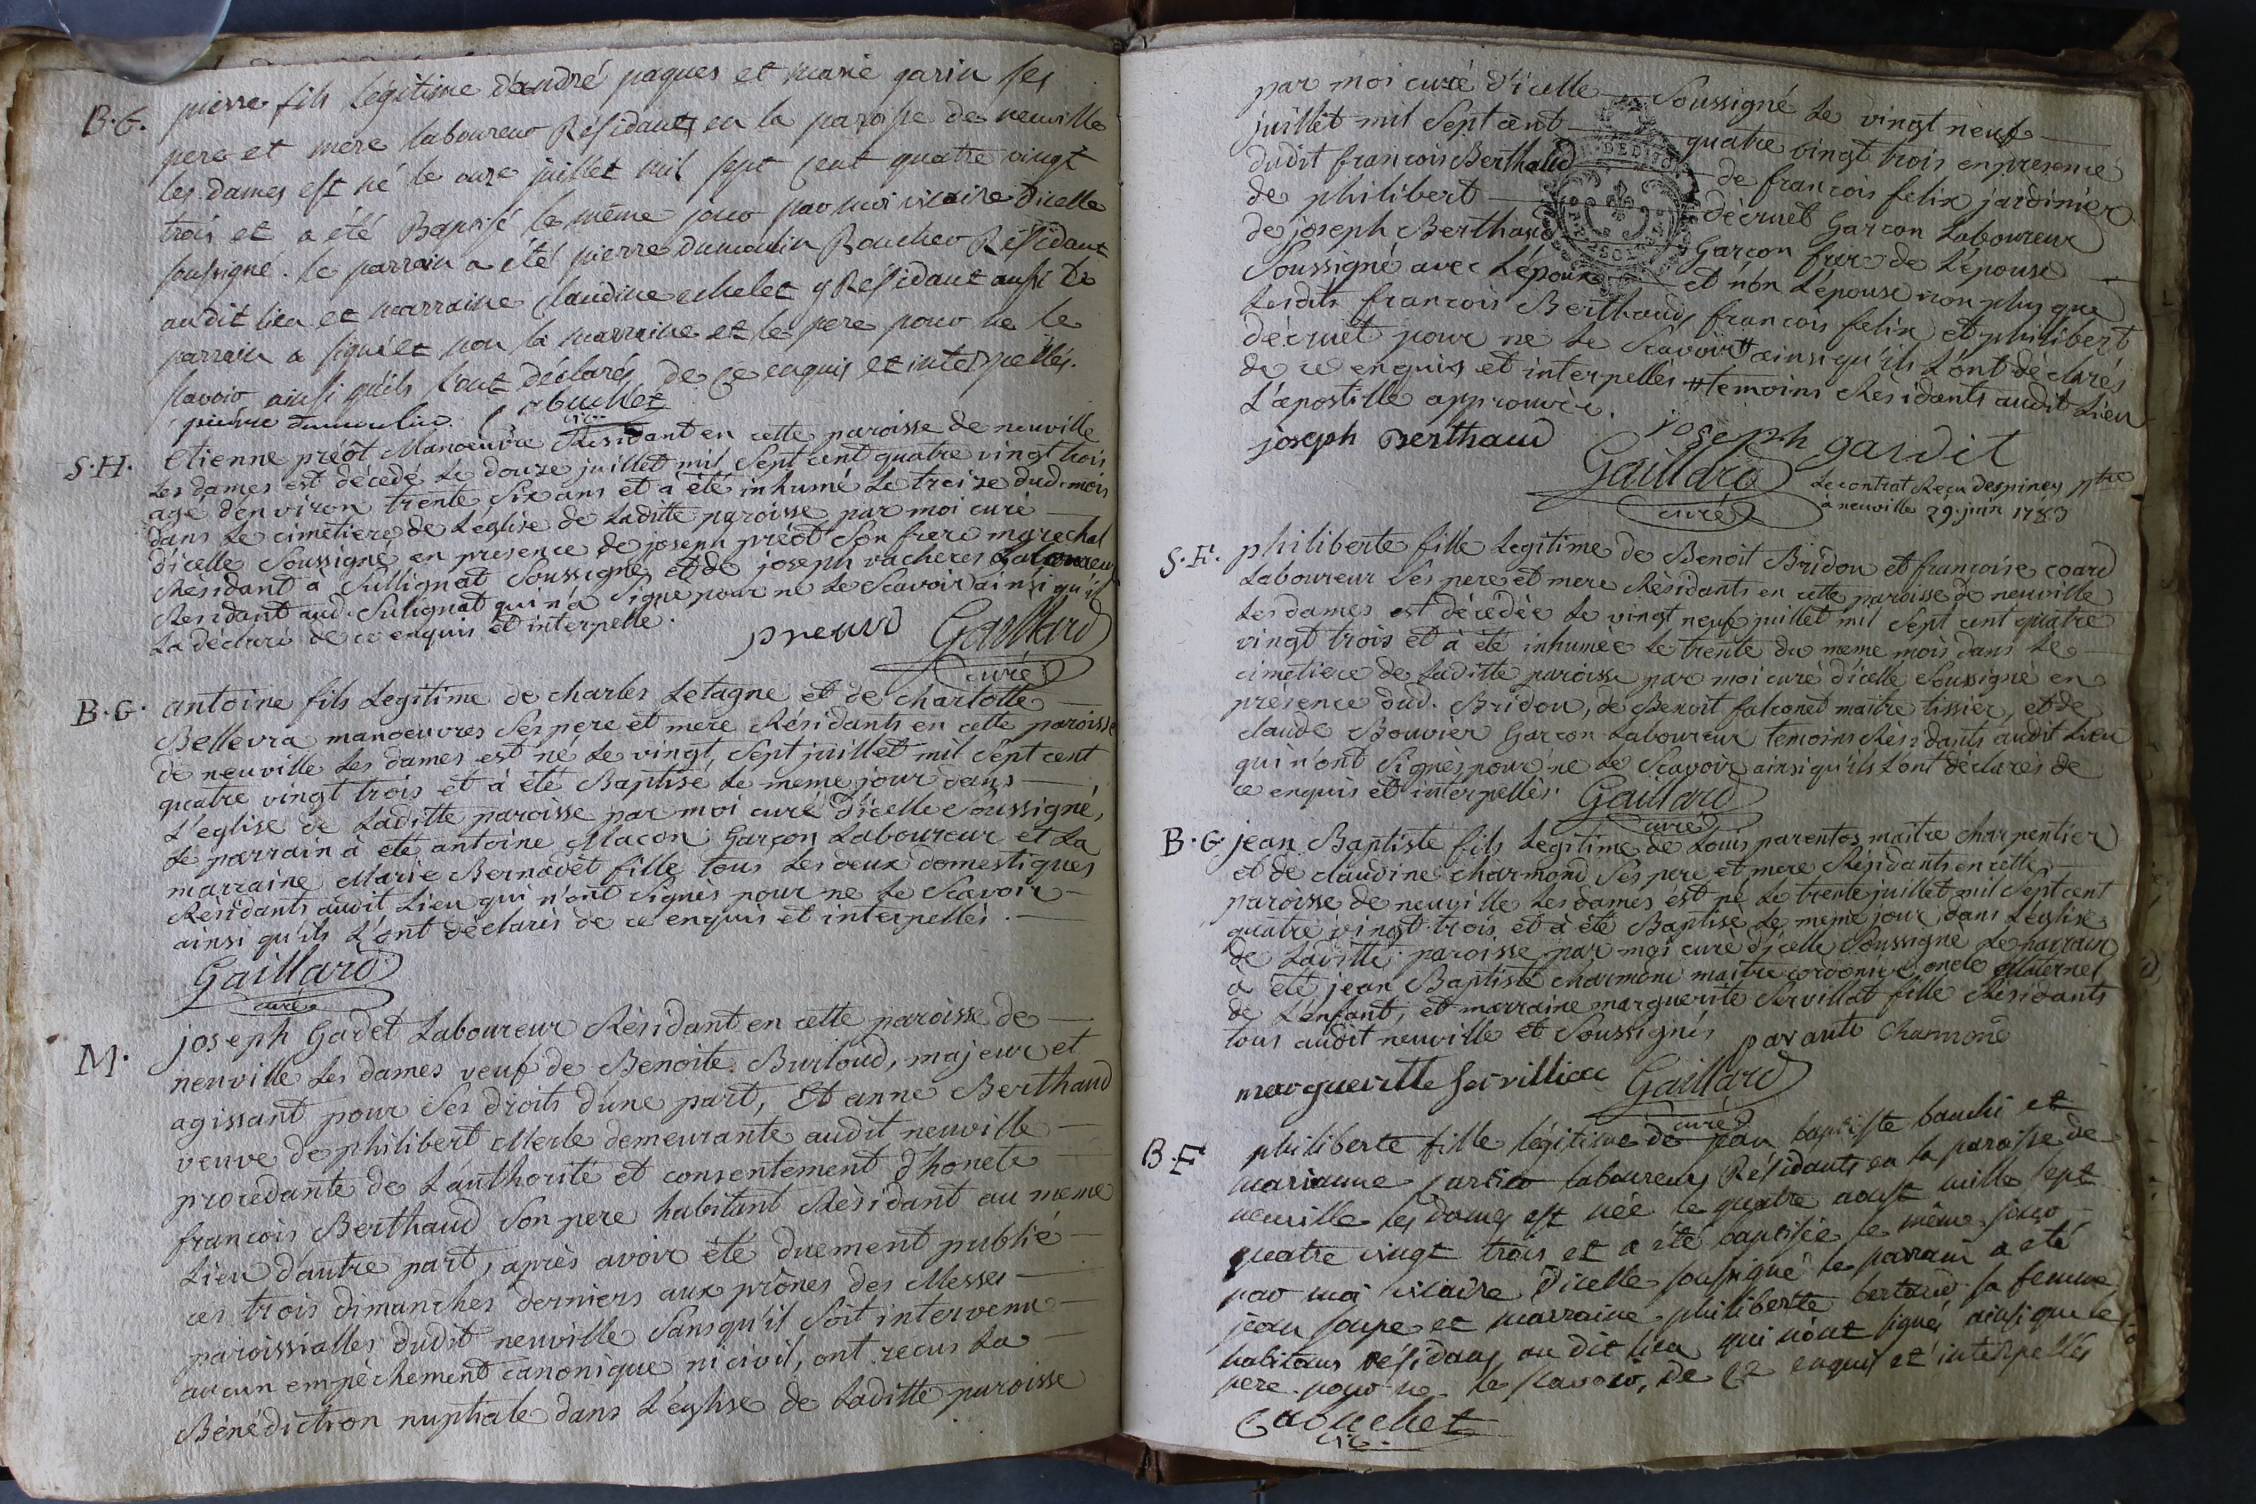 B.G. pierre fils légitime d'andré paques et marie garin ses
pere et mere laboureur Résidants en la paroisse de neuville
les dames est né le onze juillet mil sept cent quatre vingt
trois et a été Baptisé le même jour par moi vicaire d'icelle
soussigné. le parrain a été pierre dumoulin Boucher Résidant
audit lieu et marraine claudine echelet y Residant aussi le
parrain a signé et non la marraine et le pere pour ne le
scavoir ainsi qu'ils l'ont déclarés de ce enquis et interpellés.
pierre dumoulin Cabuchet
vic:
S.H. Etienne préôt Manoeuvre Résidant en cette paroisse de neuville
Les dames est décédé Le douze juillet mil Sept cent quatre vingt trois
agé d'environ trente Six ans et à été inhumé Le treize dud. mois
dans Le cimetiere de L'église de Laditte paroisse par moi curé
d'icelle Soussigné en presence de joseph préôt Son frere marechal
Résidant à Sullignat Soussigné et de joseph vacheres Laboureur
Résidant aud. Sulignat qui n'a Signé pour ne Le Scavoir ainsi qu'il
La déclaré de ce enquis et interpellé.
preuvd Gaillard
curé
B.G. antoine fils Legitime de charles Letagne et de charlotte
Bellevra manoeuvres Ses pere et mere Résidants en cette paroisse
de neuville Les dames est né Le vingt Sept juillet mil Sept cent
quatre vingt trois et à été Baptisé Le meme jour dans
L'eglise de Laditte paroisse par moi curé d'icelle Soussigné,
Le parrain à été antoine Macon Garçon Laboureur et La
marraine Marie Bernadet fille tous Les deux domestiques
Résidants audit Lieu qui n'ont Signés pour ne Le Scavoir
ainsi qu'ils L'ont déclarés de ce enquis et interpellés.
Gaillard
curé
M. joseph Gadet Laboureur Résidant en cette paroisse de
neuville Les dames veuf de Benoite Burloud, majeur et
agissant pour Ses droits d'une part, Et anne Berthaud
veuve de philibert Merle demeurante audit neuville
procedante de L'authorité et consentement d'honete
françois Berthaud Son pere habitant Résidant au meme
Lieu d'autre part, après avoir été duement publié
ces trois dimanches derniers aux prônes des Messes
paroissialles dudit neuville Sans qu'il Soit intervenu
aucun empêchement canonique ni civil, ont recus La
Bénédiction nuptiale dans L'église de Laditte paroisse
par moi curé d'icelle Soussigné Le vingt neuf
juillet mil Sept cent quatre vingt trois en presence
dudit françois Berthaud de françois felix jardinier
de philibert décruet Garcon Laboureur
de joseph Berthaud Garçon frere de L'épouse
Soussigné avec L'époux et non L'épouse non plus que
Lesdits françois Berthaud, françois felix et philibert
décruet pour ne Le Scavoir # ainsi qu'ils L'ont déclarés
de ce enquis et interpellés # temoins Résidants audit Lieu
L'apostille approuvée.
joseph Berthaud joseph gardit
Gaillard
curé
Le contrat Recu despiney ntre
à neuville 29. juin 1783
S.F. philiberte fille Legitime de Benoit Bridon et françoise coard
Laboureur Ses pere et mere Résidants en cette paroisse de neuville
Les dames est décédée Le vingt neuf juillet mil Sept cent quatre
vingt trois et à été inhumée Le trente du meme mois dans Le
cimetiere de Laditte paroisse par moi curé d'icelle Soussigné en
présence dud. Bridon, de Benoit falconet maitre tissier, et de
claude Bouvier Garçon Laboureur temoins Résidants audit Lieu
qui n'ont Signés pour ne Le Scavoir ainsi qu'ils L'ont déclarés de
ce enquis et interpellés. Gaillard
curé
B.G jean Baptiste fils Legitime de Louis parentos maitre charpentier
et de claudine charmond Ses pere et mere Résidants en cette
paroisse de neuville Les dames est né Le trente juillet mil Sept cent
quatre vingt trois et à été Baptisé Le meme jour dans L'église
de Laditte paroisse par moi curé d'icelle Soussigné Le parrain
a été jean Baptiste charmond maitre cordonier oncle Maternel
de L'enfant, et marraine marguerite Servillat fille Résidants
tous audit neuville et Soussignés parante Charmond
margueritte Servilliat Gaillard
curé
B.F philiberte fille légitime de jean baptiste bauchi et
marianne laboureurs Résidants en la paroisse de
neuville les dames est née le quatre aoust mille sept
quatre vingt trois et a été baptisée le même jour
par moi vicaire d'icelle soussigné le parrain a été
jean soupe et marraine philiberte bertaud sa femme
habitans résidans au dit lieu qui n'ont signés ainsi que le
pere pour ne le scavoir, de ce enquis et interpellés
Cabuchet
vic.